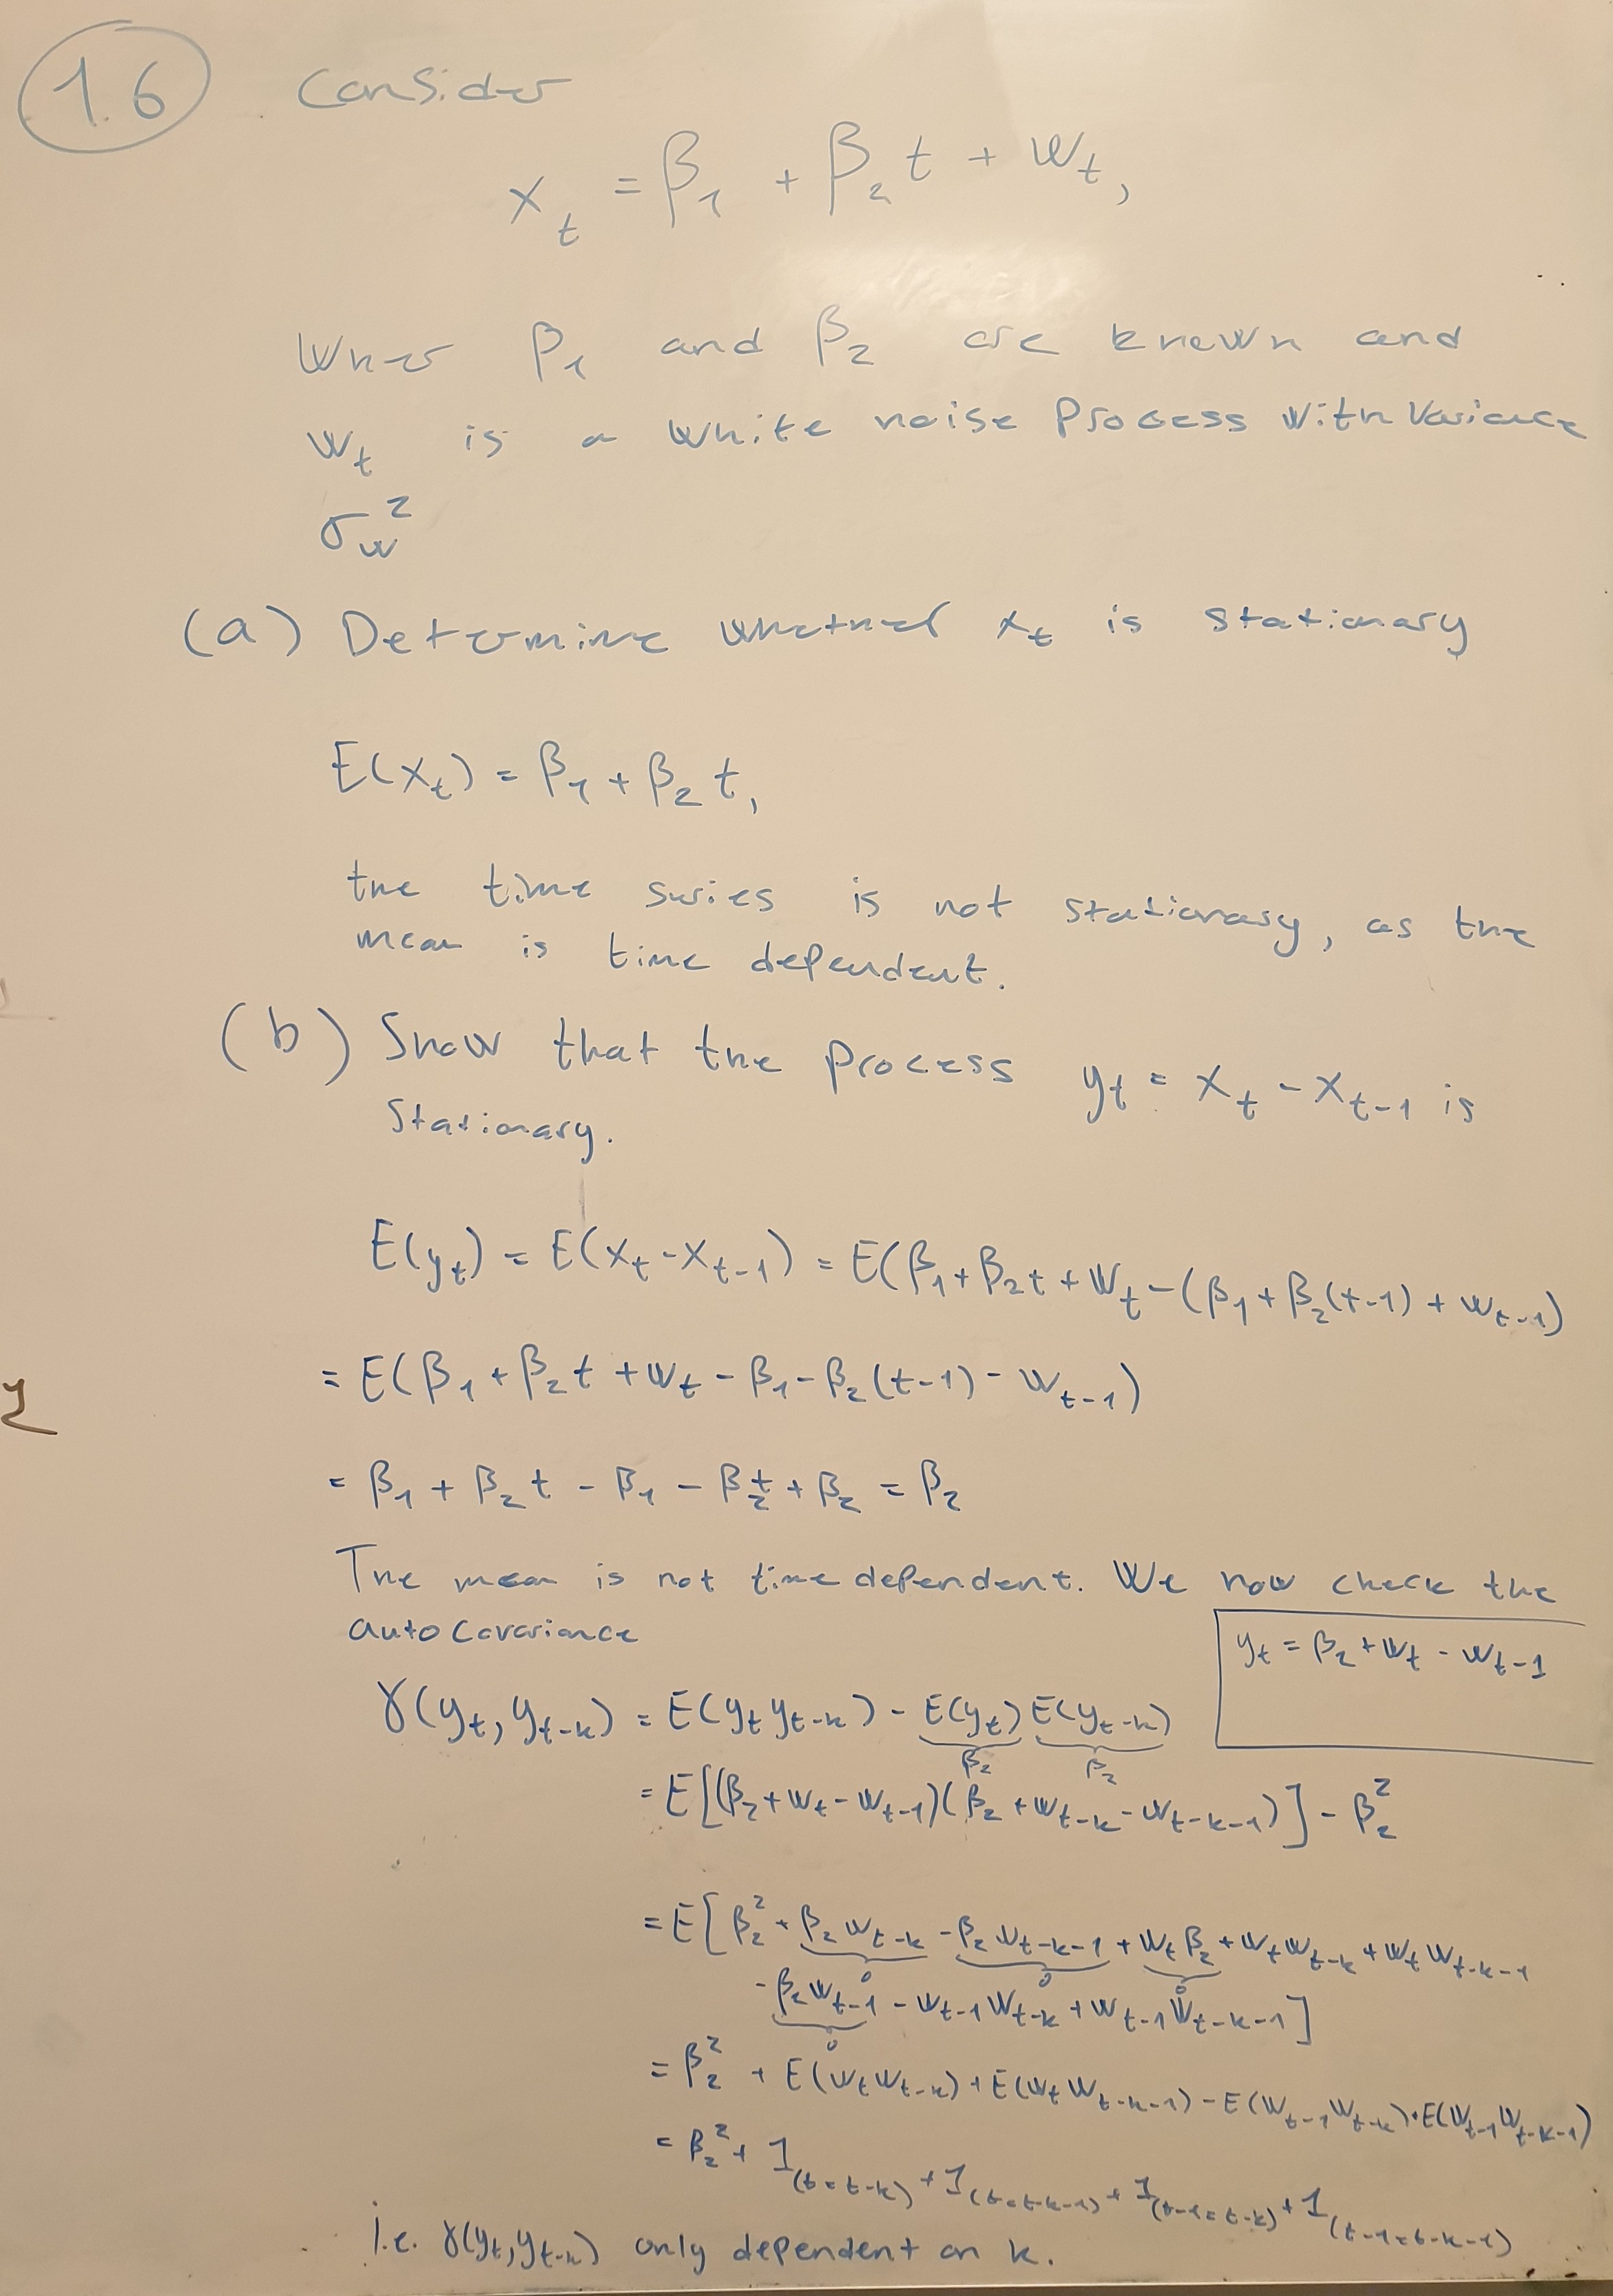 1.6 Consider
x_t = β_1 + β_2 t + w_t,
Where β_1 and β_2 are known and
w_t is a white noise process with variance
σ_w^2
(a) Determine whether x_t is stationary
E(x_t) = β_1 + β_2 t,
the time series is not stationary, as the
mean is time dependent.
(b) Show that the process y_t = x_t - x_{t-1} is
stationary.
E(y_t) = E(x_t - x_{t-1}) = E(β_1 + β_2 t + w_t - (β_1 + β_2(t-1) + w_{t-1})
= E(β_1 + β_2 t + w_t - β_1 - β_2(t-1) - w_{t-1})
= β_1 + β_2 t - β_1 - β_2 t + β_2 = β_2
The mean is not time dependent. We now check the
autocovariance
y_t = β_2 + w_t - w_{t-1}
γ(y_t, y_{t-k}) = E(y_t y_{t-k}) - E(y_t) E(y_{t-k})
β_2 β_2
= E[(β_2 + w_t - w_{t-1})(β_2 + w_{t-k} - w_{t-k-1})] - β_2^2
= E[β_2^2 + β_2 w_{t-k} - β_2 w_{t-k-1} + w_t β_2 + w_t w_{t-k} + w_t w_{t-k-1}
0 0 0
- β_2 w_{t-1} - w_{t-1} w_{t-k} + w_{t-1} w_{t-k-1}]
0
= β_2^2 + E(w_t w_{t-k}) + E(w_t w_{t-k-1}) - E(w_{t-1} w_{t-k}) + E(w_{t-1} w_{t-k-1})
= β_2^2 + 1_{(t=t-k)} + 1_{(t=t-k-1)} + 1_{(t-1=t-k)} + 1_{(t-1=t-k-1)}
i.e. γ(y_t, y_{t-k}) only dependent on k.